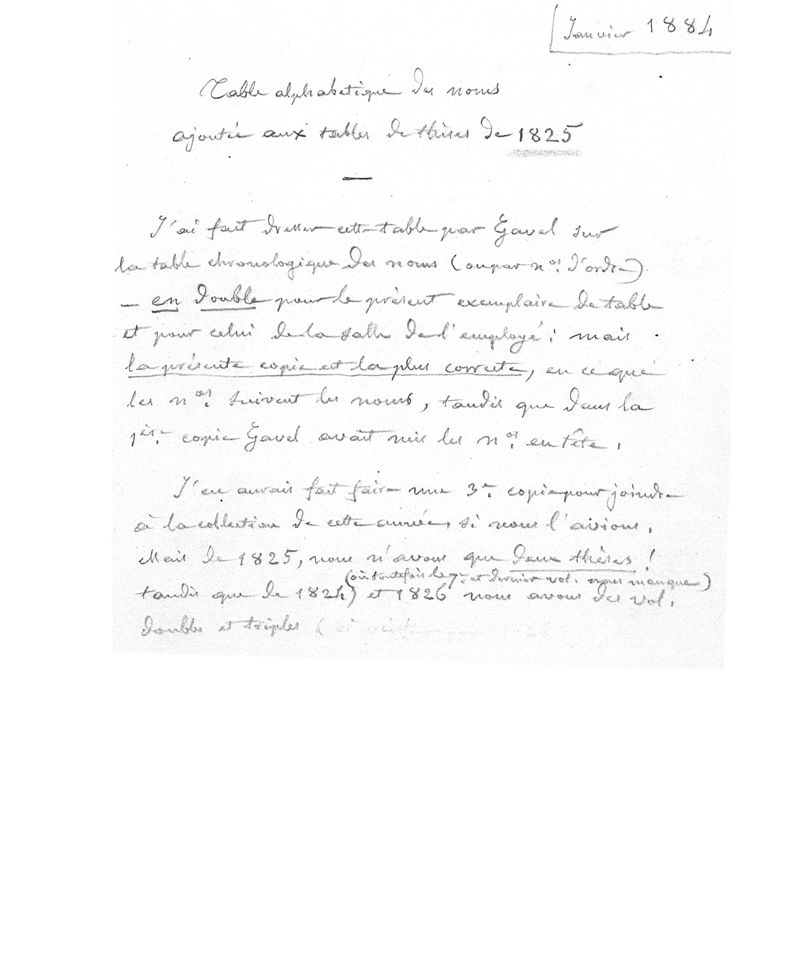 Janvier 1884
Table alphabétique des noms
ajoutée aux tables de thèses de 1825
—
J'ai fait dresser cette table par Gavel sur
la table chronologique des noms (ou par nos d'ordre)
— en double pour le présent exemplaire de table
et pour celui de la salle de l'employé ; mais
la présente copie est la plus correcte, en ce que
les nos suivent les noms, tandis que dans la
1ère copie Gavel avait mis les nos en tête.
J'en aurais fait faire une 3e copie pour joindre
à la collection de cette année, si nous l'avions.
Mais de 1825, nous n'avons que deux thèses !
(où toutefois le 7e et dernier vol. nous manque)
tandis que de 1824) et 1826 nous avons des vol.
doubles et triples (